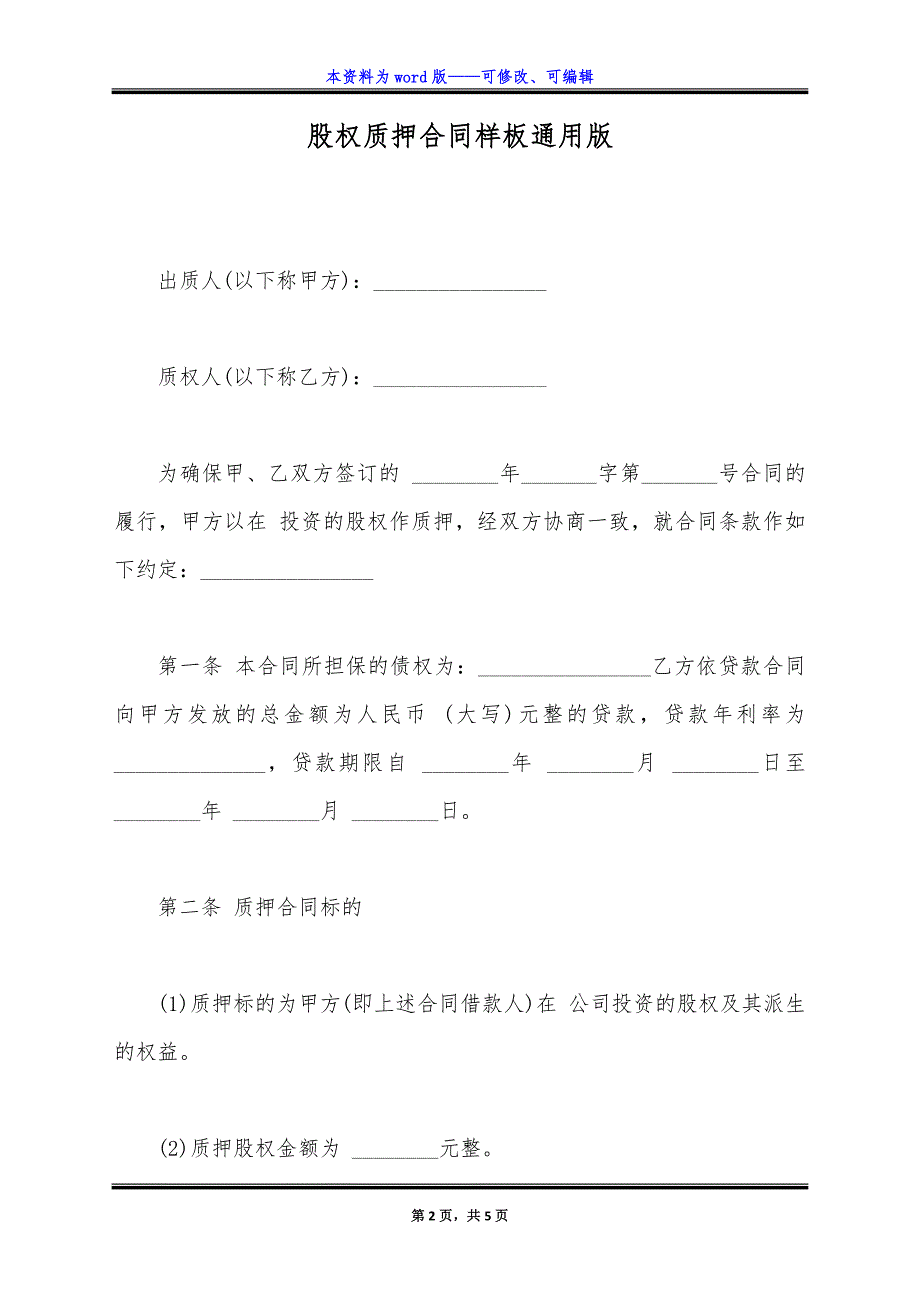 本资料为 word 版——可修改、可编辑
股权质押合同样板通用版
出质人(以下称甲方)：________________
质权人(以下称乙方)：________________
为确保甲、乙双方签订的 ________年_______字第_______号合同的
履行，甲方以在 投资的股权作质押，经双方协商一致，就合同条款作如
下约定：________________
第一条 本合同所担保的债权为：________________乙方依贷款合同
向甲方发放的总金额为人民币 (大写)元整的贷款，贷款年利率为
______________，贷款期限自 ________年 ________月 ________日至
________年 ________月 ________日。
第二条 质押合同标的
(1)质押标的为甲方(即上述合同借款人)在 公司投资的股权及其派生
的权益。
(2)质押股权金额为 ________元整。
第 2 页，共 5 页